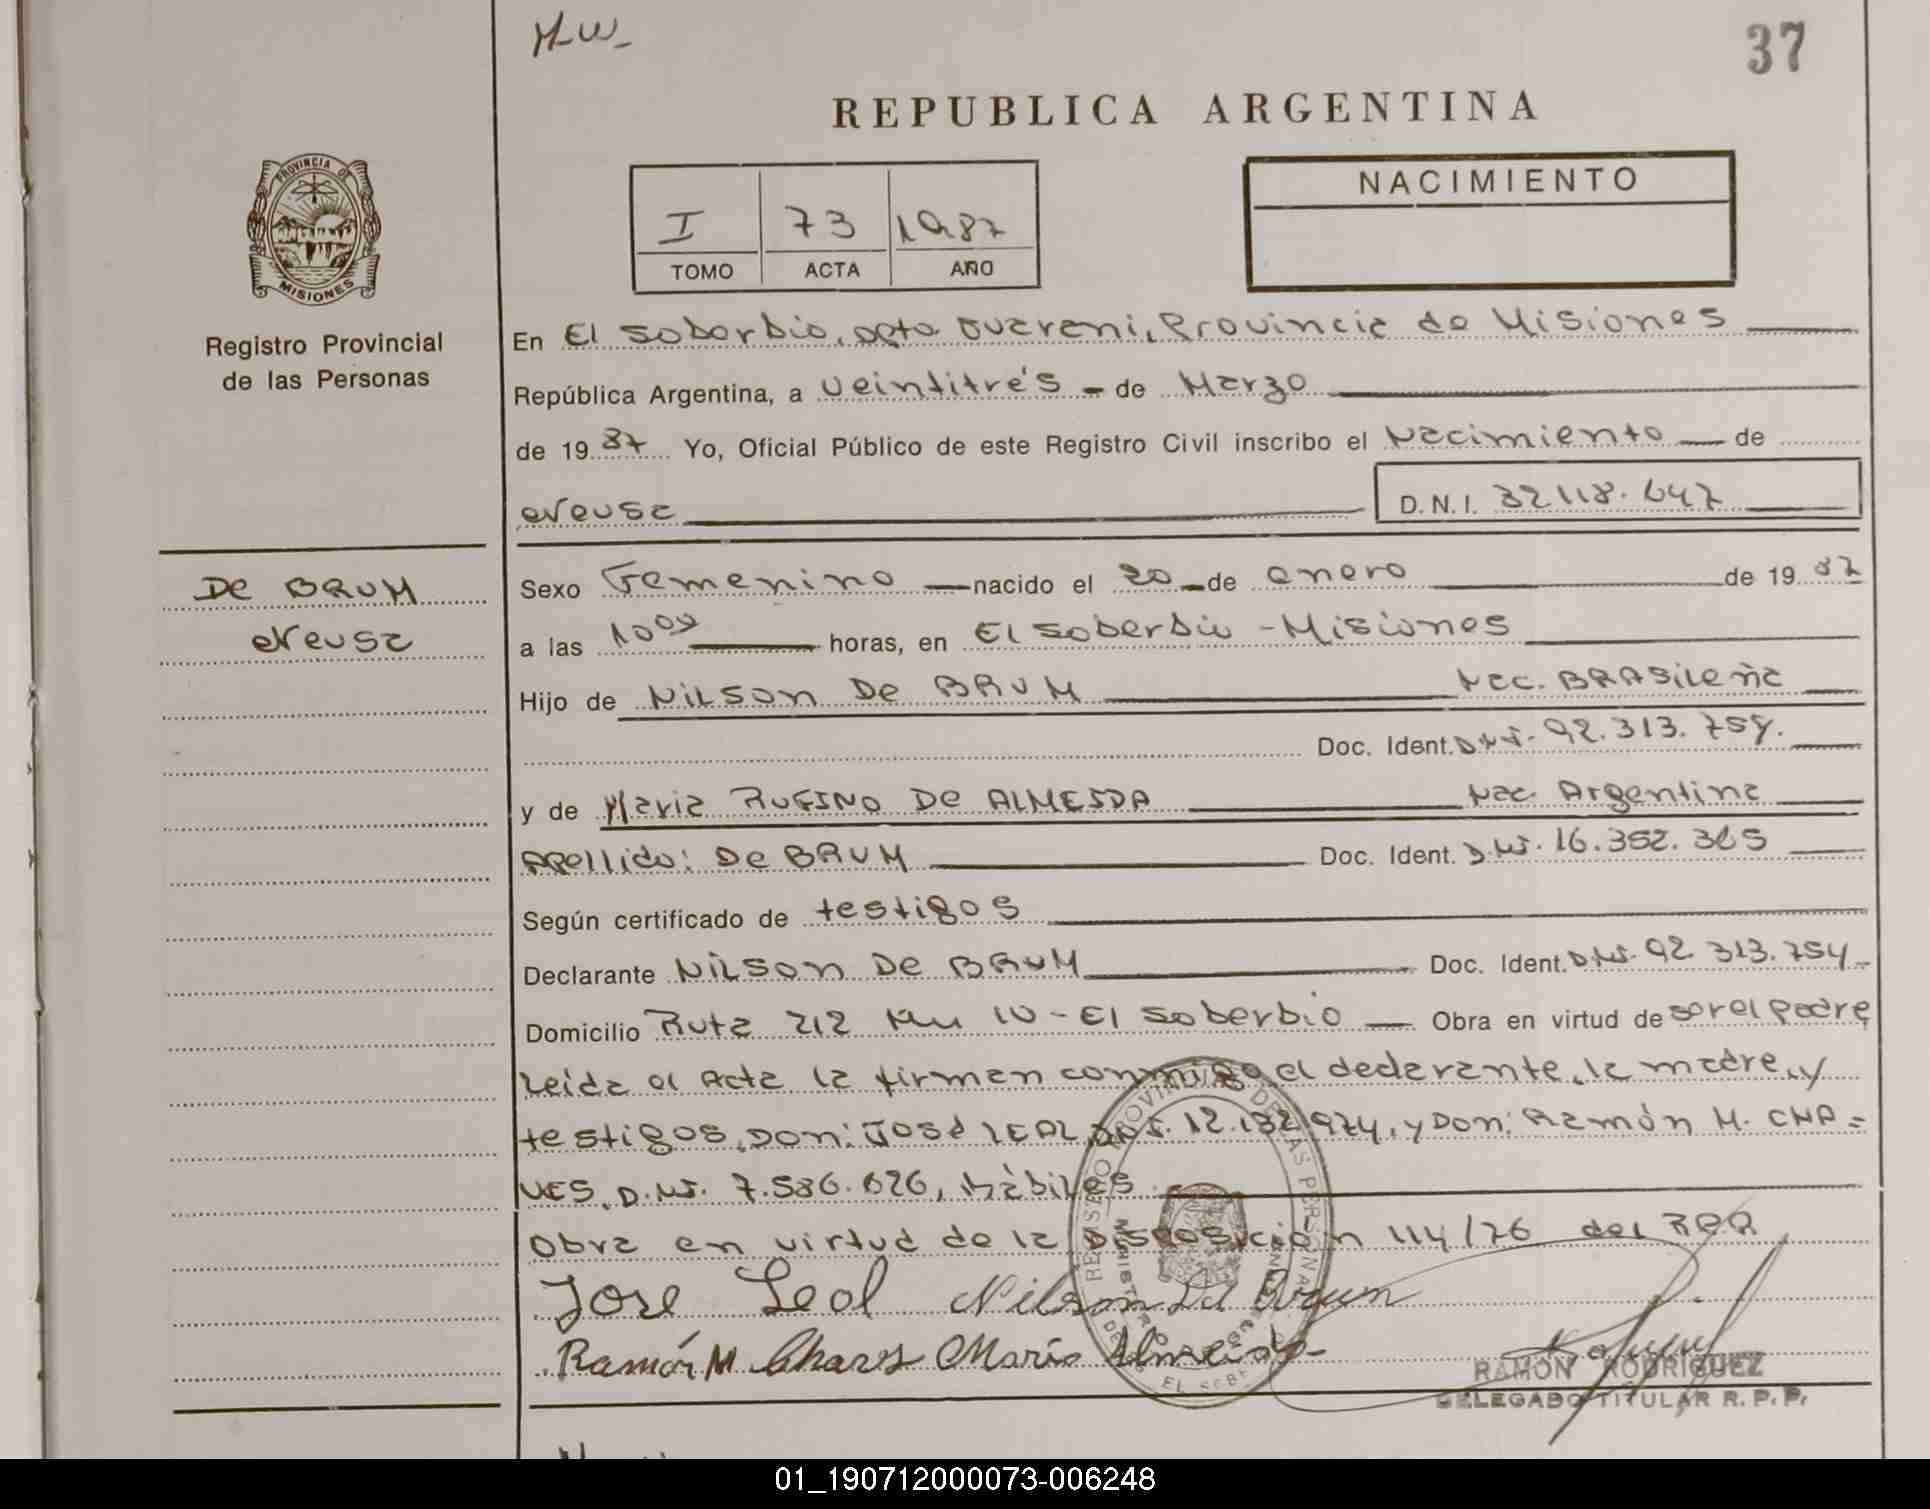 M-W-
37
REPUBLICA ARGENTINA
PROVINCIA DE
MISIONES
Registro Provincial
de las Personas
I 73 1987
TOMO ACTA AÑO
NACIMIENTO
En El Soberbio, Dpto Guarani, Provincia de Misiones
República Argentina, a veintitrés - de Marzo
de 19 87 Yo, Oficial Público de este Registro Civil inscribo el Nacimiento de
Neusa D.N.I. 32118.647
DE BRUM
Neusa
Sexo Femenino nacido el 20 - de enero de 19 87
a las 10ºº horas, en El Soberbio - Misiones
Hijo de NILSON DE BRUM Nac. BRASileña
Doc. Ident. D.N.I. 92.313.754.
y de Maria RUFINO DE ALMEIDA Nac. Argentina
Apellido: De BRUM Doc. Ident. D.N.I. 16.352.365
Según certificado de testigos
Declarante NILSON De BRUM Doc. Ident. D.N.I. 92.313.754
Domicilio Ruta 212 Km 10 - El Soberbio Obra en virtud de ser el padre
Leida el Acta la firman conmigo el declarante, la madre, y
testigos, Don: José LEAL D.N.I. 12.132.974, y Don: Ramón M. CHA=
VES, D.N.I. 7.586.626, hábiles
Obra en virtud de la Disposición 114/76 del RPP
Jose Leal Nilson De Brum
Ramón M Chaves Maria Almeida
RAMON RODRIGUEZ
DELEGADO TITULAR R.P.P.
01_190712000073-006248